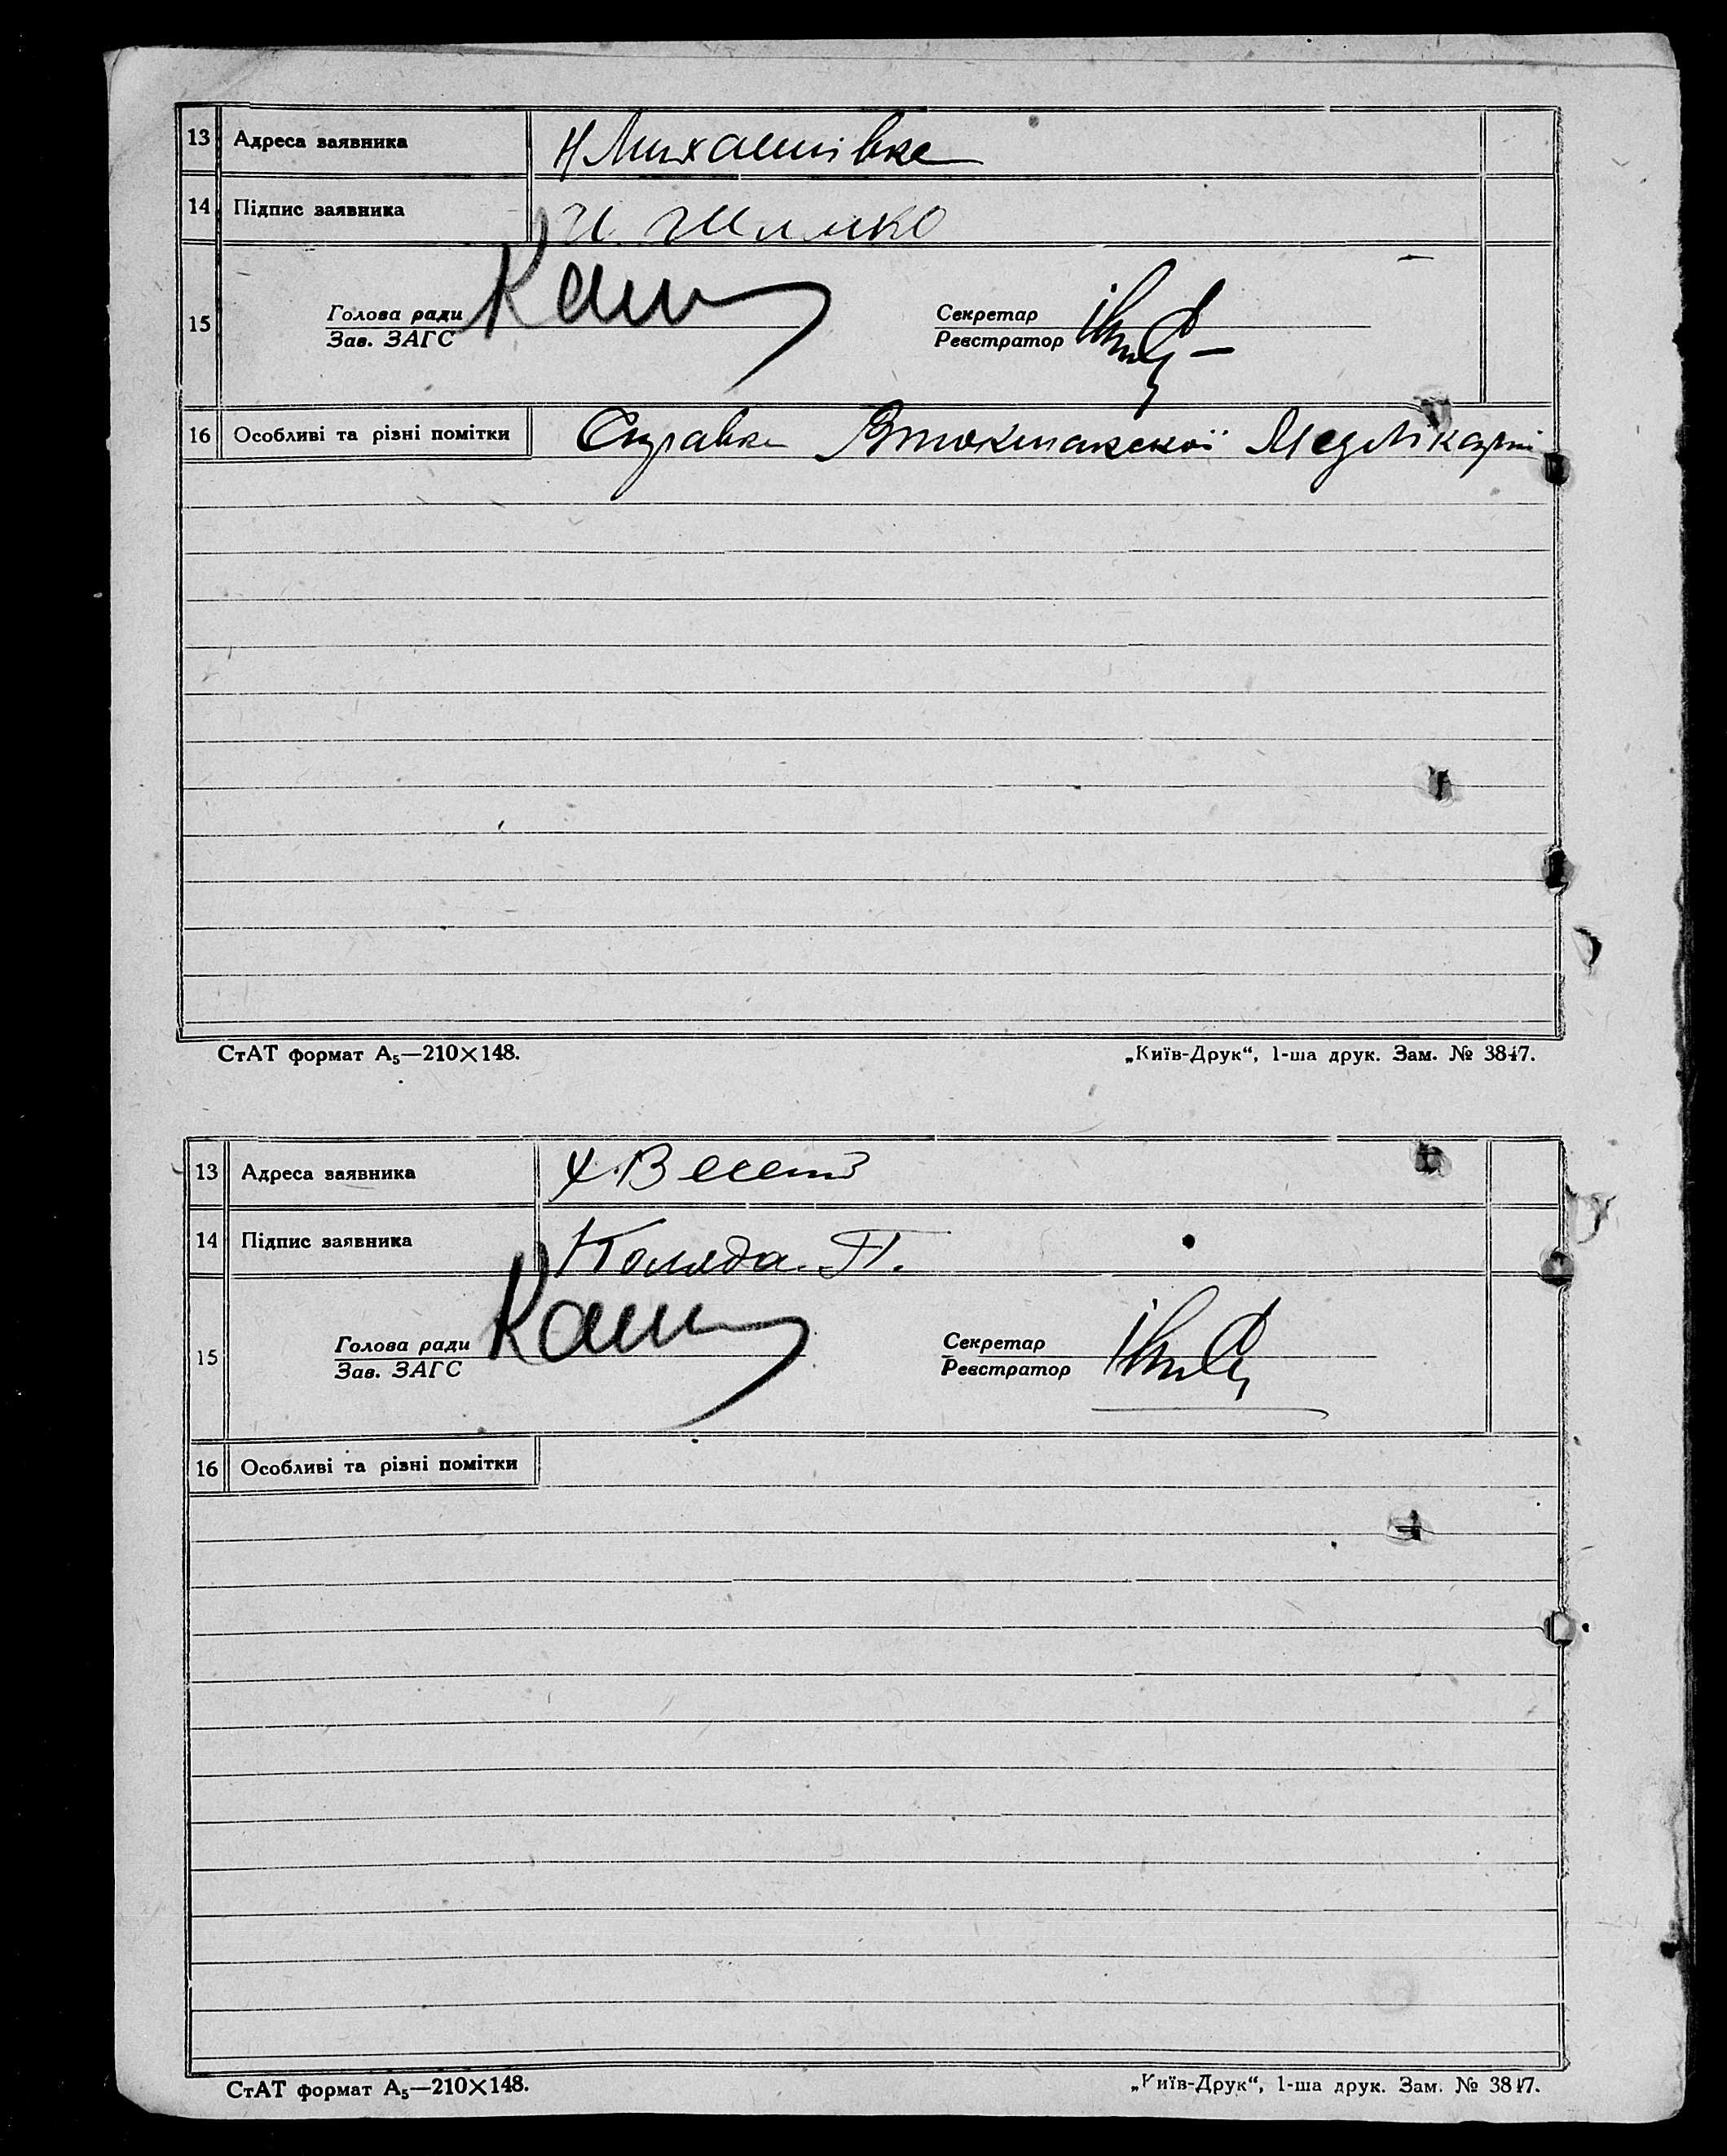 13 Адреса заявника Н Михайлівка
14 Підпис заявника
15 Голова ради Секретар
Зав. ЗАГС Реєстратор
16 Особливі та різні помітки Справка Втокмакскої Медлікарні
СтАТ формат А₅—210×148. „Київ-Друк“, 1-ша друк. Зам. № 3847.
13 Адреса заявника
14 Підпис заявника Коляда. П.
15 Голова ради Секретар
Зав. ЗАГС Реєстратор
16 Особливі та різні помітки
СтАТ формат А₅—210×148. „Київ-Друк“, 1-ша друк. Зам. № 3847.